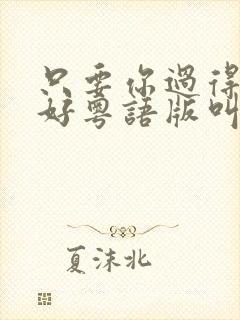 只要你過得
好粵語版叫
夏沫北